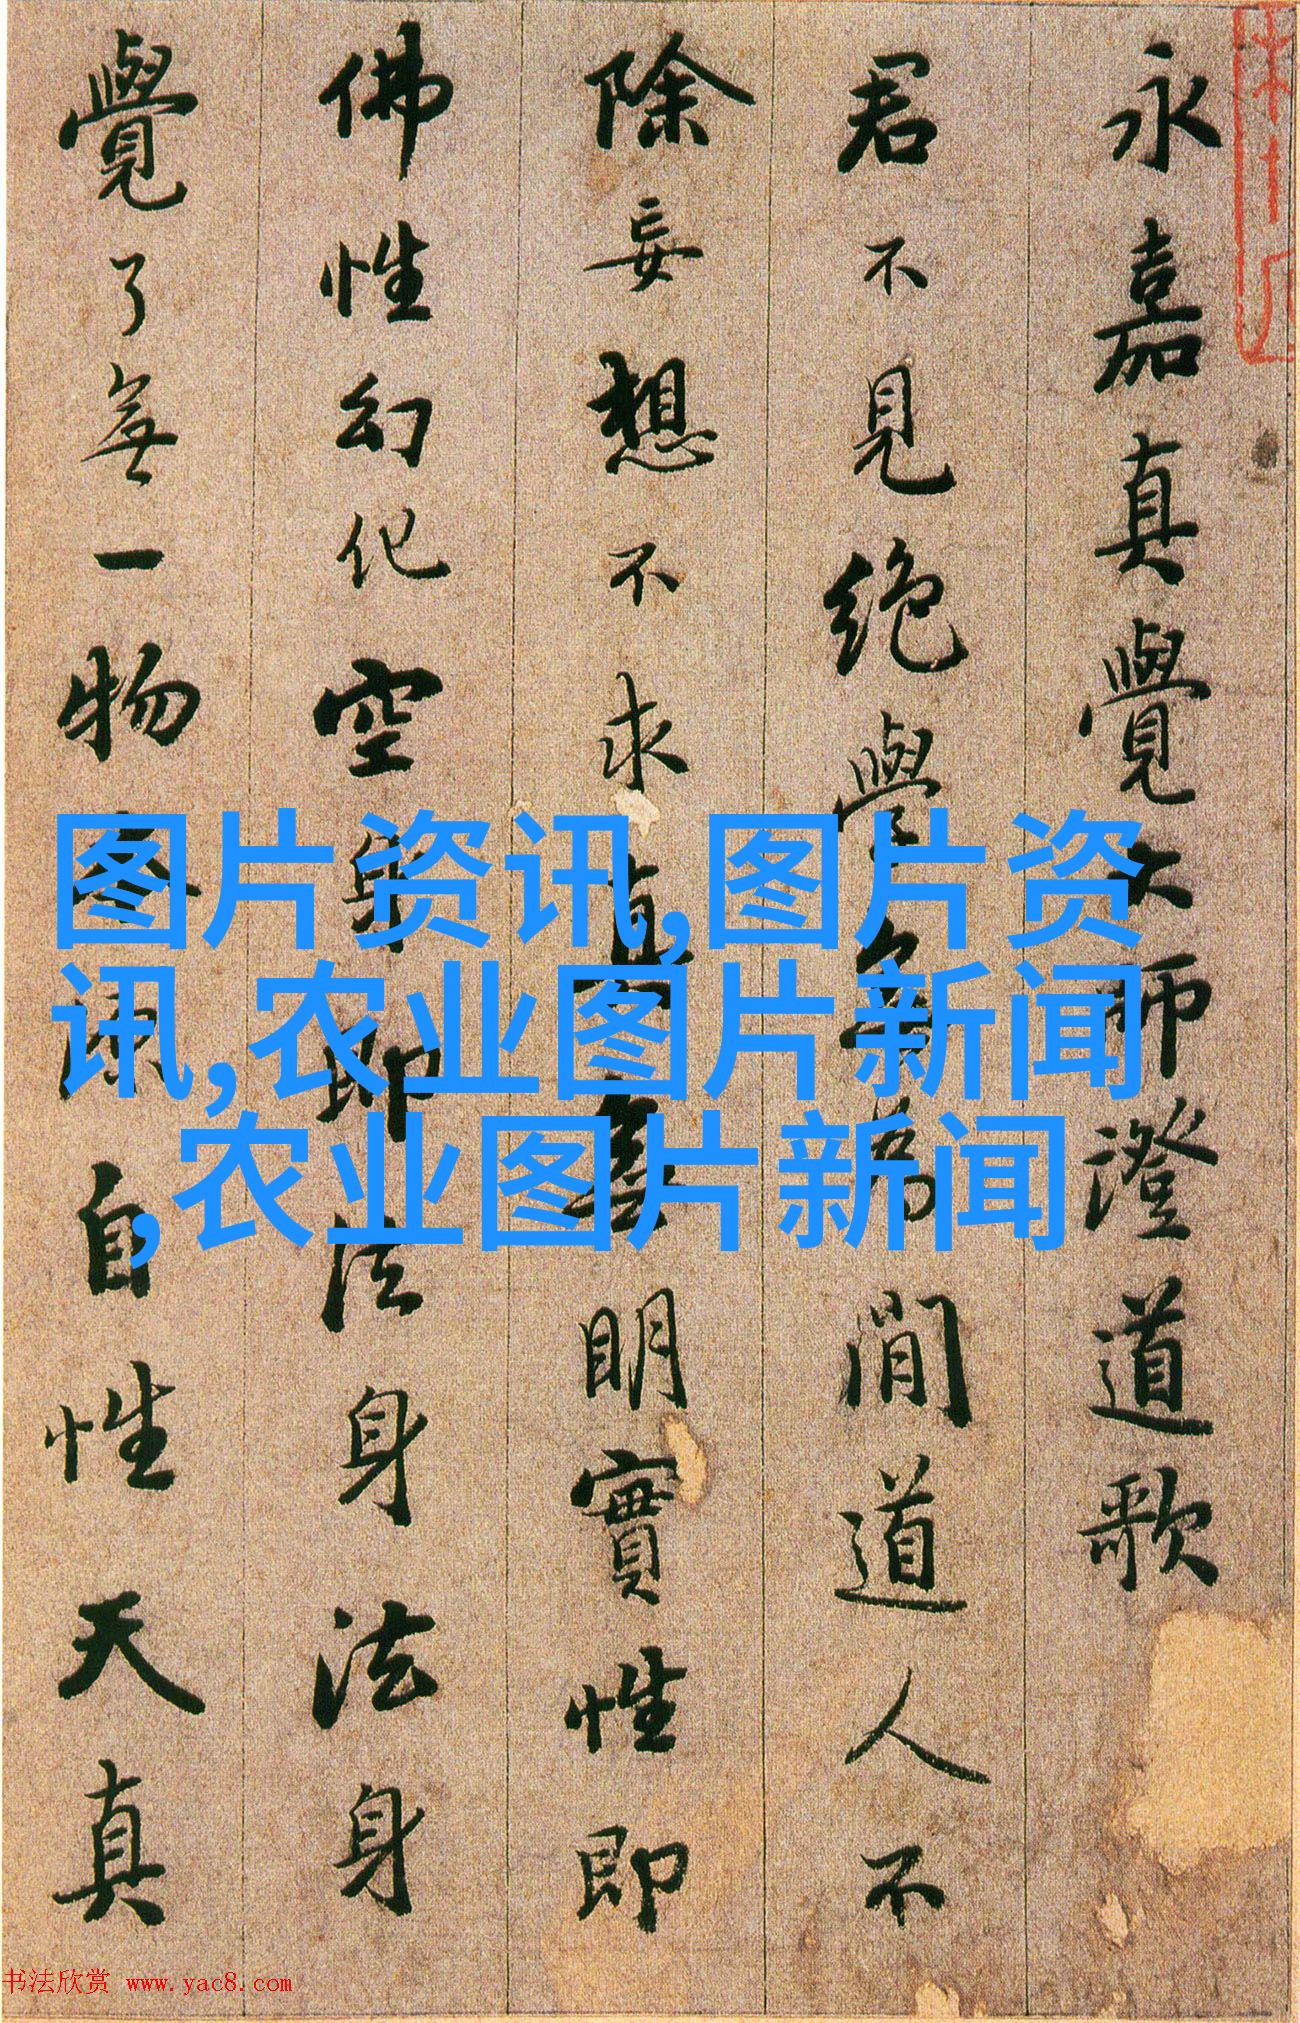 永嘉真覺大師證道歌
君不見絕學無為閒道人不
除妄想不求真無明實性即
佛性幻化空身即法身法身
覺了無一物本源自性天真
图片资讯,图片资
讯,农业图片新闻
,农业图片新闻
书法欣赏 www.yac8.com